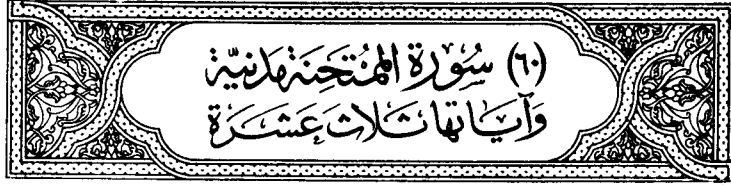 (٦٠) سُورَة المُمْتَحِنَة مَدَنِيَّة
وَآيَاتهَا ثَلَاثَ عَشَرَة